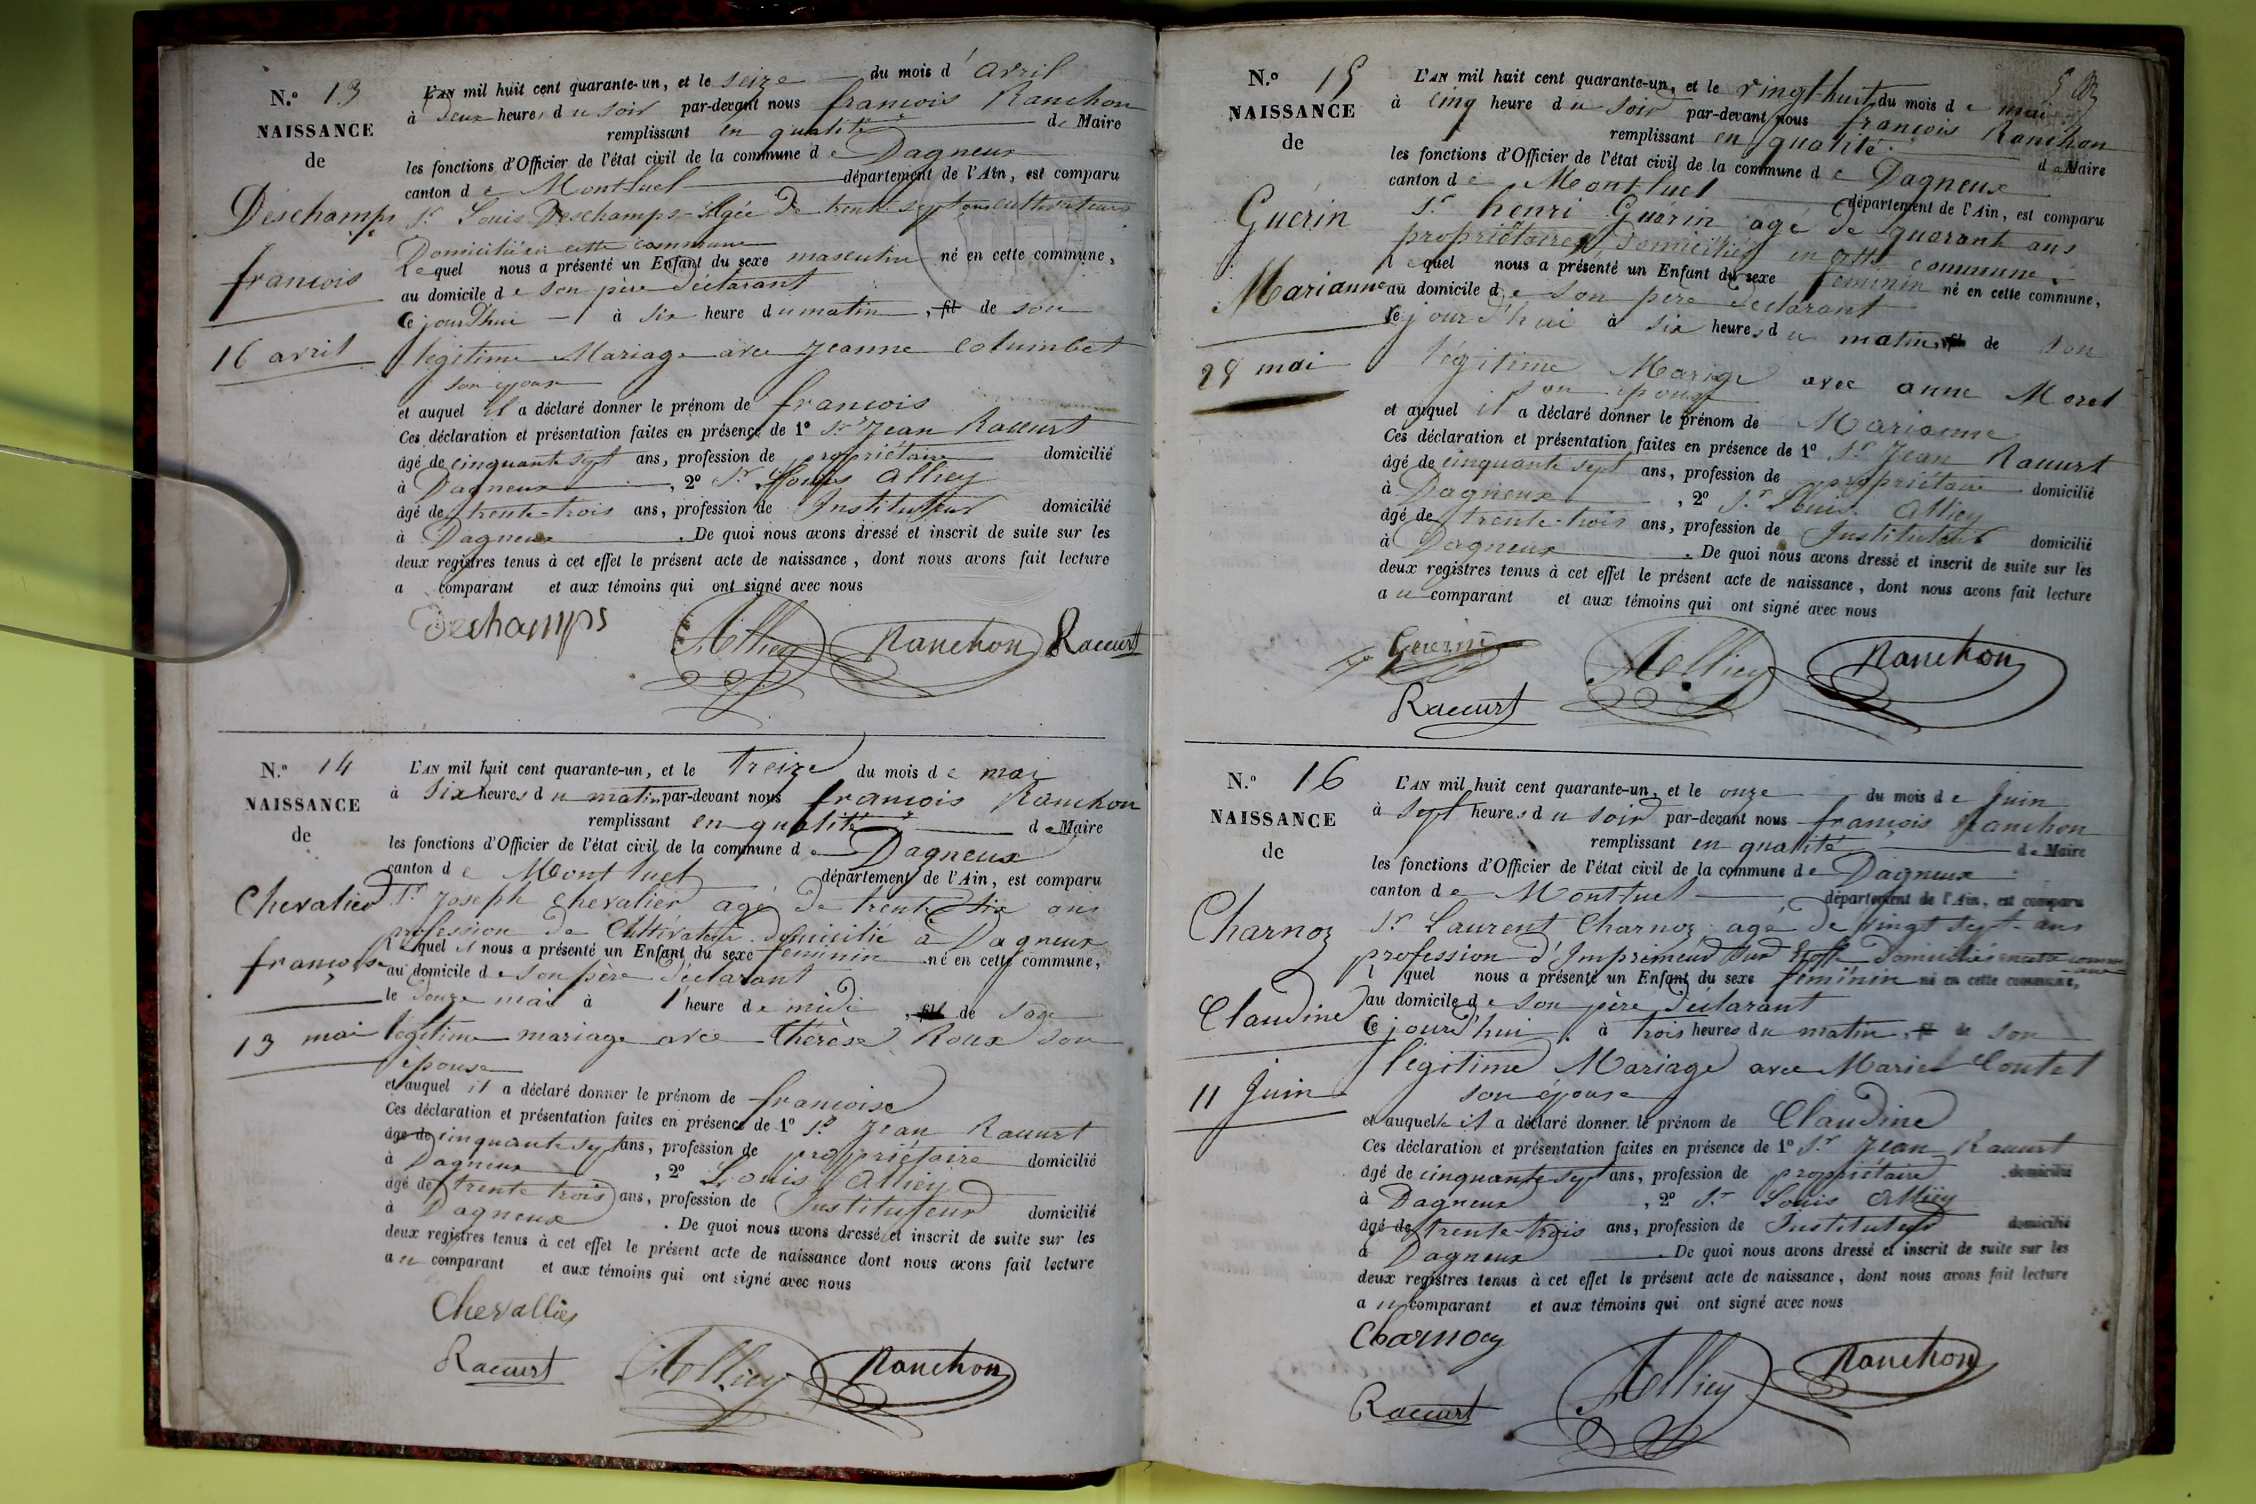 N.º 13
NAISSANCE
de
Deschamps
francois
16 avril
L'AN mil huit cent quarante-un, et le seize du mois d' avril
à deux heures du soir par-devant nous francois Ranchon
remplissant en qualité de Maire
les fonctions d'Officier de l'état civil de la commune de Dagneux
canton de Montluel département de l'Ain, est comparu
Sr Louis Deschamps Agée de trente-sept ans cultivateur
Domicilié en cette commune
Lequel nous a présenté un Enfant du sexe masculin né en cette commune,
au domicile de son père déclarant
Ce jourd'hui à six heure du matin, fil de son
légitime Mariage avec Jeanne Columbet
son épouse
et auquel il a déclaré donner le prénom de francois
Ces déclaration et présentation faites en présence de 1º Sr Jean Raccurt
âgé de cinquante sept ans, profession de propriétaire domicilié
à Dagneux, 2º Sr Louis Alliey
âgé de trente-trois ans, profession de Instituteur domicilié
à Dagneux. De quoi nous avons dressé et inscrit de suite sur les
deux registres tenus à cet effet le présent acte de naissance, dont nous avons fait lecture
a comparant et aux témoins qui ont signé avec nous
Deschamps Alliey Ranchon Raccurt
N.º 14
NAISSANCE
de
Chevalier
francoise
13 mai
L'AN mil huit cent quarante-un, et le treize du mois de mai
à Six heures du matin par-devant nous francois Ranchon
remplissant en qualité de Maire
les fonctions d'Officier de l'état civil de la commune de Dagneux
canton de Montluel département de l'Ain, est comparu
Sr Joseph Chevalier agé de trente six ans
profession de Cultivateur domicilié à Dagneux
Lequel il nous a présenté un Enfant du sexe feminin né en cette commune,
au domicile de son père déclarant
le douze mai à l'heure de midi, fil de son
légitime mariage avec Thérèse Roux son
épouse
et auquel il a déclaré donner le prénom de francoise
Ces déclaration et présentation faites en présence de 1º Sr Jean Raccurt
âgé de cinquante sept ans, profession de propriétaire domicilié
à Dagneux, 2º Louis Alliey
âgé de trente trois ans, profession de Instituteur domicilié
à Dagneux. De quoi nous avons dressé et inscrit de suite sur les
deux registres tenus à cet effet le présent acte de naissance dont nous avons fait lecture
au comparant et aux témoins qui ont signé avec nous
Chevallier
Raccurt Alliey Ranchon
N.º 15
NAISSANCE
de
Guerin
Marianne
28 mai
L'AN mil huit cent quarante-un, et le vingt-huit du mois de mai
à cinq heure du soir par-devant nous francois Ranchon
remplissant en qualité de Maire
les fonctions d'Officier de l'état civil de la commune de Dagneux
canton de Montluel département de l'Ain, est comparu
Sr henri Guérin agé de quarante ans
propriétaire domicilié en cette commune
lequel nous a présenté un Enfant du sexe féminin né en cette commune,
au domicile de son père déclarant
ce jourd'hui à six heures du matin, fil de son
légitime Mariage avec anne Morel
son épouse
et auquel il a déclaré donner le prénom de Marianne
Ces déclaration et présentation faites en présence de 1º Sr Jean Raccurt
âgé de cinquante sept ans, profession de propriétaire domicilié
à Dagneux, 2º Sr Louis Alliey
âgé de trente-trois ans, profession de Instituteur domicilié
à Dagneux. De quoi nous avons dressé et inscrit de suite sur les
deux registres tenus à cet effet le présent acte de naissance, dont nous avons fait lecture
au comparant et aux témoins qui ont signé avec nous
Guerin Alliey Ranchon
Raccurt
N.º 16
NAISSANCE
de
Charnoz
Claudine
11 Juin
L'AN mil huit cent quarante-un, et le onze du mois de Juin
à Sept heures du soir par-devant nous francois Ranchon
remplissant en qualité de Maire
les fonctions d'Officier de l'état civil de la commune de Dagneux
canton de Montluel département de l'Ain, est comparu
Sr Laurent Charnoz agé de vingt sept ans
profession d'Imprimeur sur Etoffe Domicilié en cette commune
lquel nous a présenté un Enfant du sexe féminin né en cette commune,
au domicile de son père déclarant
Ce jourd'hui à trois heures du matin, fil de son
légitime Mariage avec Marie Contet
son épouse
et auquelle il a déclaré donner le prénom de Claudine
Ces déclaration et présentation faites en présence de 1º Sr Jean Raccurt
âgé de cinquante sept ans, profession de propriétaire domicilié
à Dagneux, 2º Sr Louis Alliey
âgé de trente-trois ans, profession de Instituteur domicilié
à Dagneux. De quoi nous avons dressé et inscrit de suite sur les
deux registres tenus à cet effet le présent acte de naissance, dont nous avons fait lecture
au comparant et aux témoins qui ont signé avec nous
Charnoz
Raccurt Alliey Ranchon